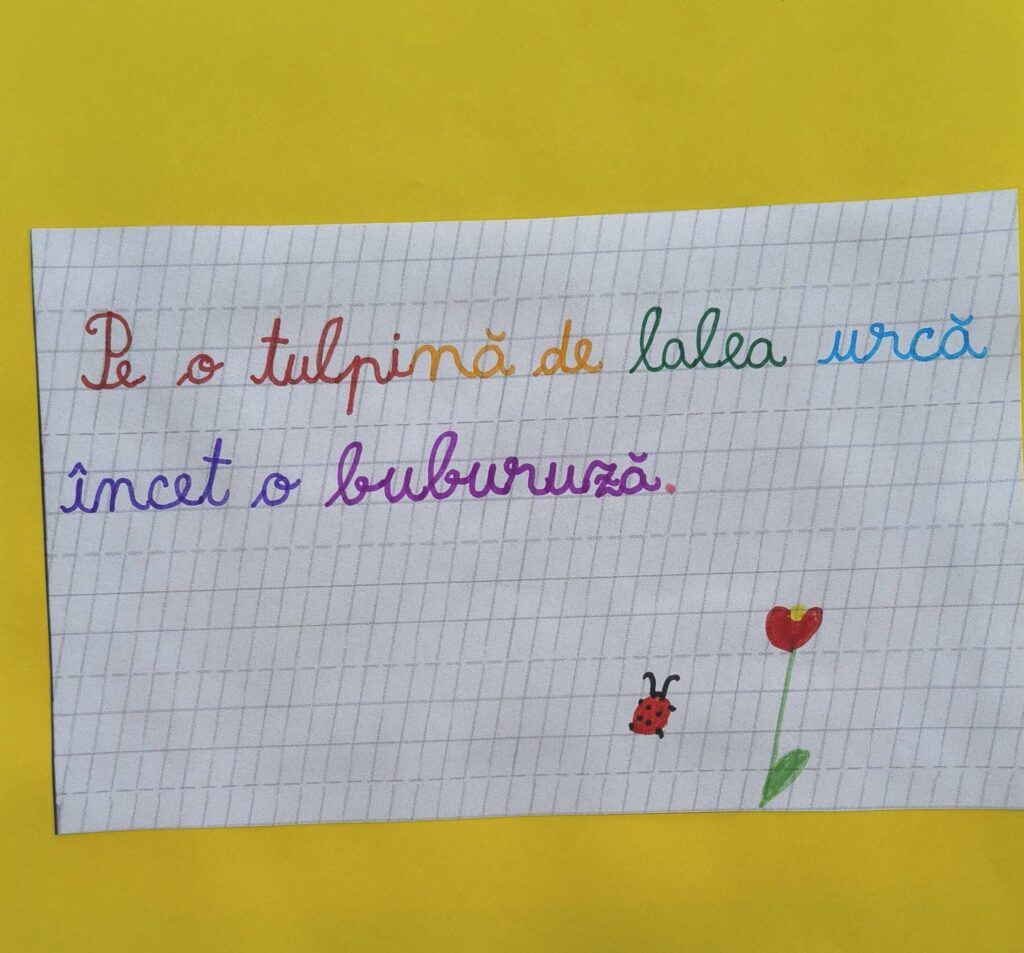 Pe o tulpină de lalea urcă
încet o buburuză.